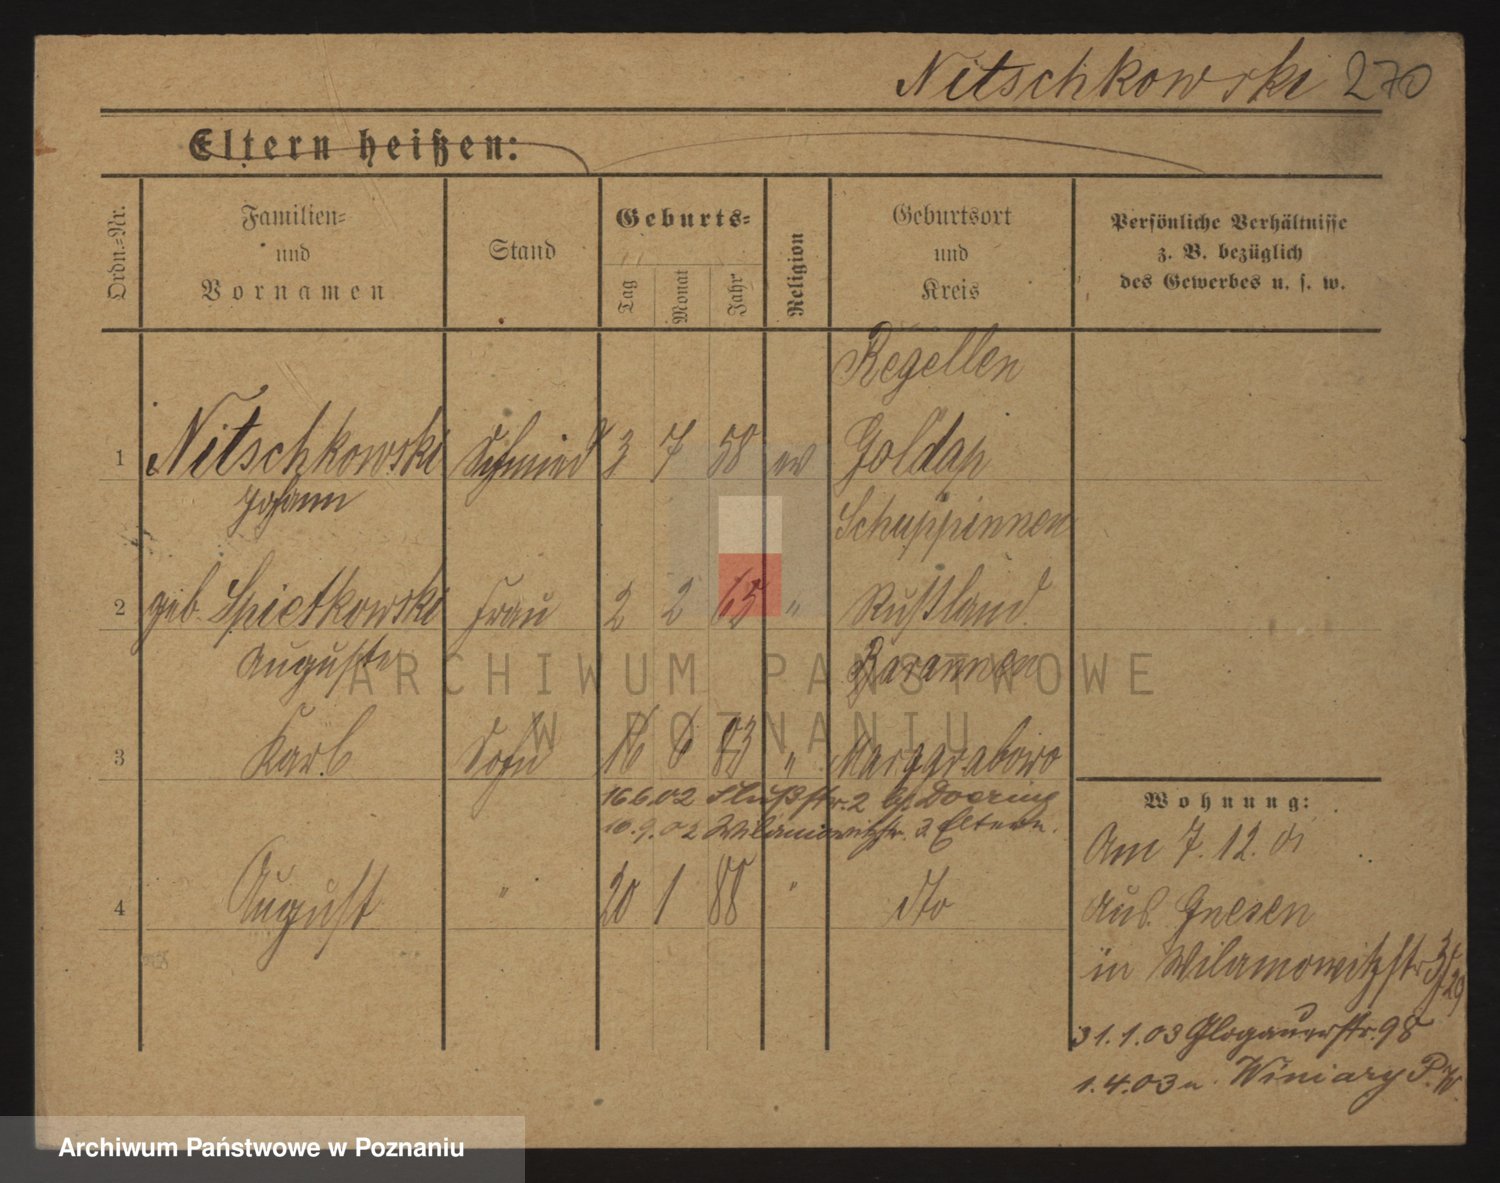 Nitschkowski 270
Eltern heißen:
Ordn.-Nr.
Familien-
und
Vornamen
Stand
Geburts-
Tag
Monat
Jahr
Religion
Geburtsort
und
Kreis
Persönliche Verhältnisse
z. B. bezüglich
des Gewerbes u. s. w.
Regellen
1 Nitschkowski Schmied 3 7 58 ev Goldap
Johann
Schuppinnen
2 geb. Spietkowski Frau 2 2 65 " Rußland
Auguste
Barannen
3 Karl Sohn 16 6 83 " Marggrabowo
16.6.02 Flußstr. 2 b. Doering
10.9.02 Wilamowitzstr. 3 Eltern.
4 August " 20 1 88 " dto
Wohnung:
Am 7. 12. 01
aus Gnesen
in Wilamowitzstr 3/29
31.1.03 Glogauerstr. 98
1.4.03 n. Winiary P. W.
ARCHIWUM PAŃSTWOWE
W POZNANIU
Archiwum Państwowe w Poznaniu